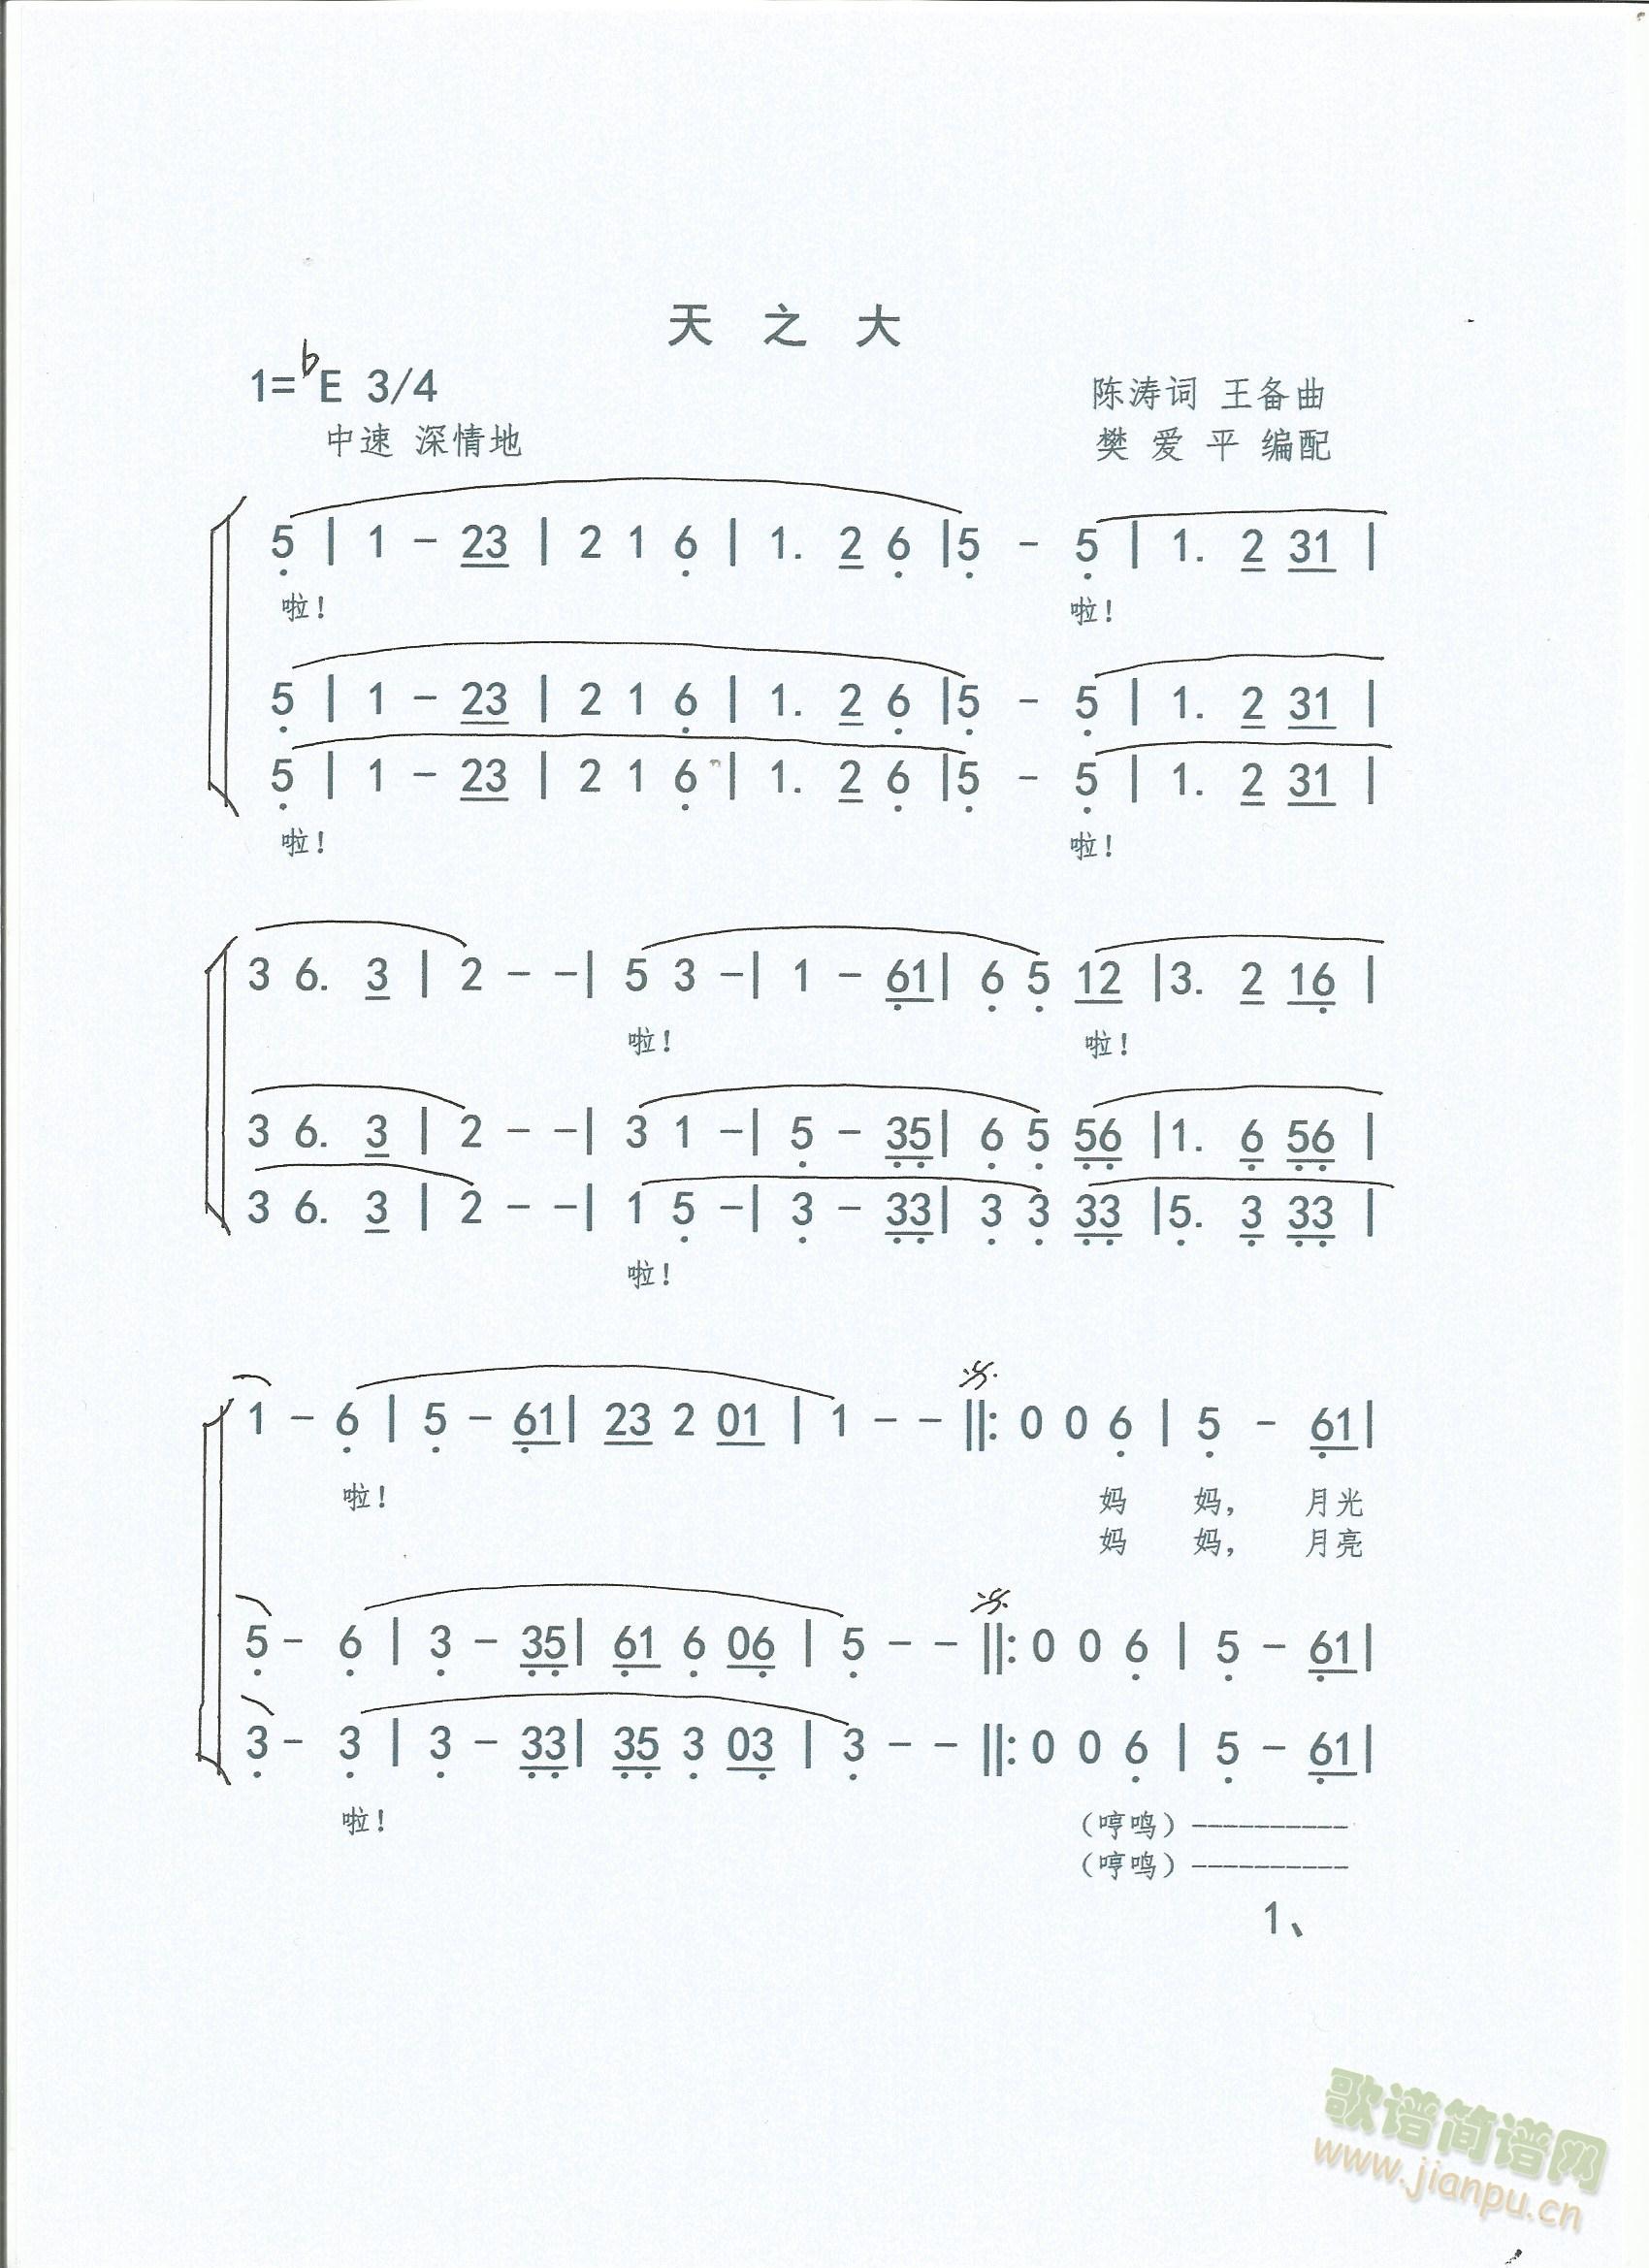 天 之 大
1=bE 3/4
陈涛词 王备曲
中速 深情地
樊 爱 平 编配
5 | 1 - 23 | 2 1 6 | 1. 2 6 |5 - 5 | 1. 2 31 |
啦! 啦!
5 | 1 - 23 | 2 1 6 | 1. 2 6 |5 - 5 | 1. 2 31 |
5 | 1 - 23 | 2 1 6 | 1. 2 6 |5 - 5 | 1. 2 31 |
啦! 啦!
3 6. 3 | 2 - -| 5 3 -| 1 - 61| 6 5 12 |3. 2 16 |
啦! 啦!
3 6. 3 | 2 - -| 3 1 -| 5 - 35| 6 5 56 |1. 6 56 |
3 6. 3 | 2 - -| 1 5 -| 3 - 33| 3 3 33 |5. 3 33 |
啦!
1 - 6 | 5 - 61| 23 2 01 | 1 - - ||: 0 0 6 | 5 - 61|
啦! 妈 妈, 月光
妈 妈, 月亮
5 - 6 | 3 - 35| 61 6 06 | 5 - - ||: 0 0 6 | 5 - 61|
3 - 3 | 3 - 33| 35 3 03 | 3 - - ||: 0 0 6 | 5 - 61|
啦! (哼鸣) ----------
(哼鸣) ----------
1、
歌谱简谱网
www.jianpu.cn